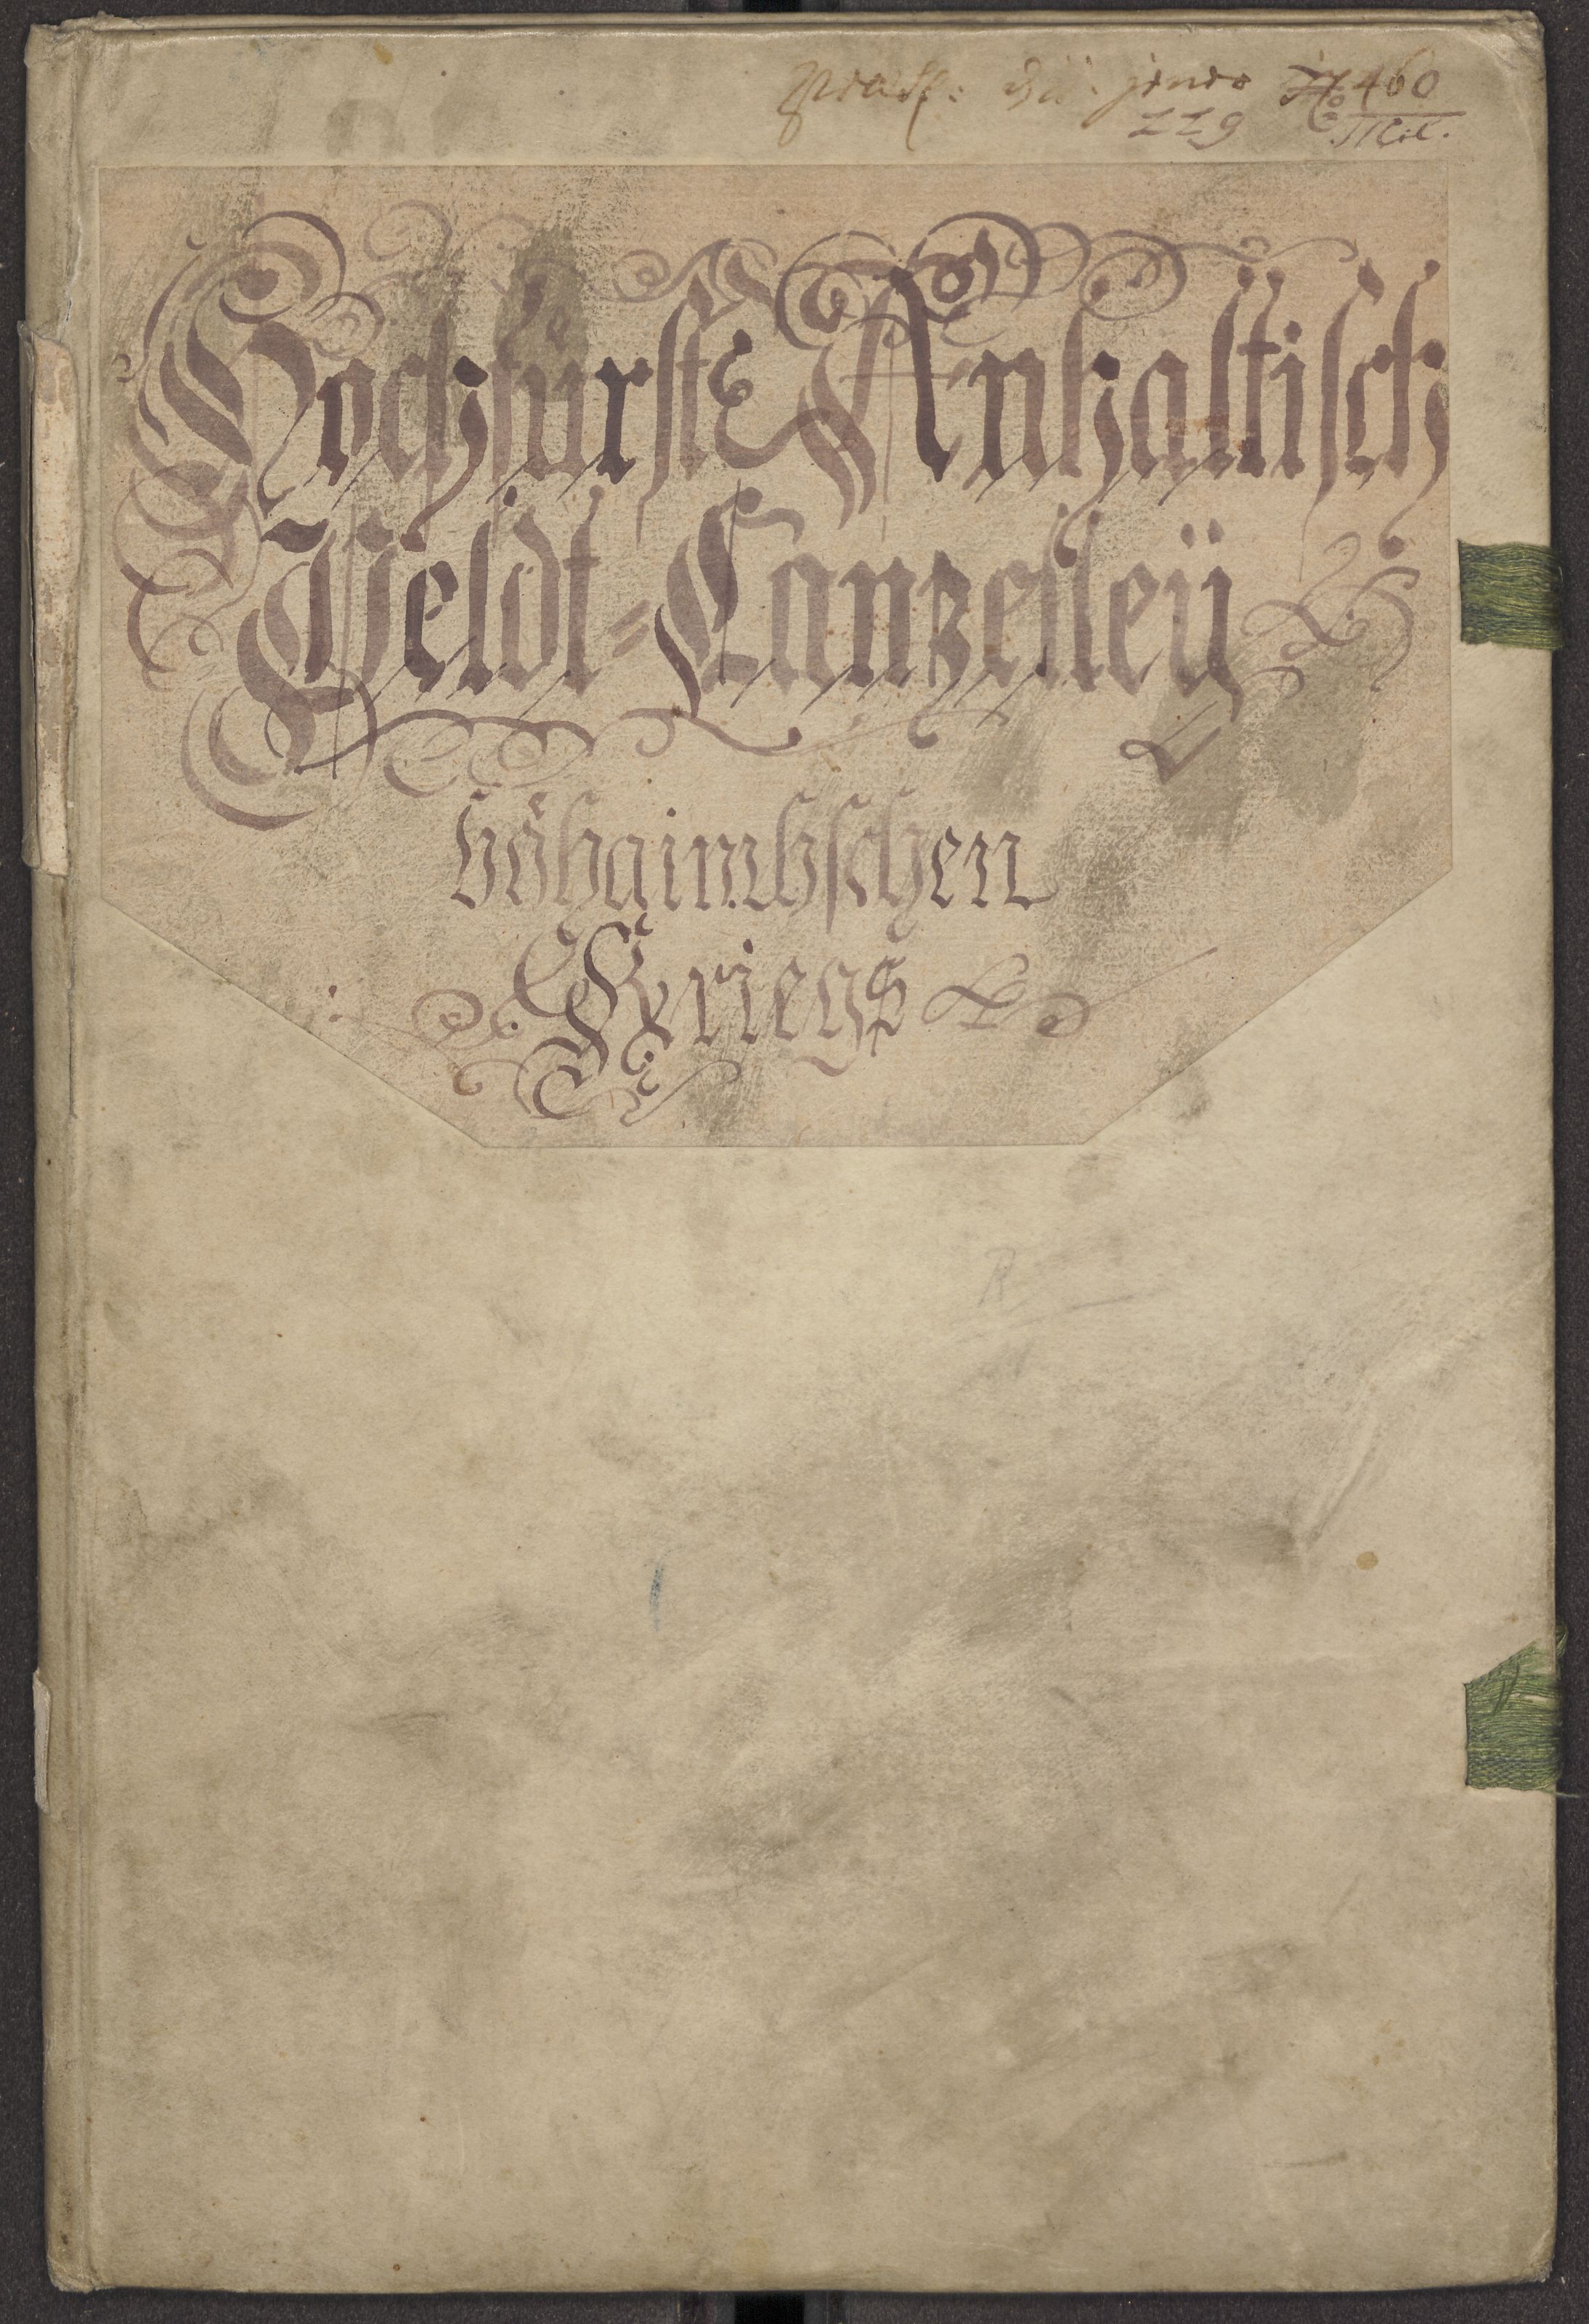 No 460
119 Mil.
Hochfürstl Anhaltisch
Veldt-Canzelleÿ
böhaimbschen
Kriegs
R